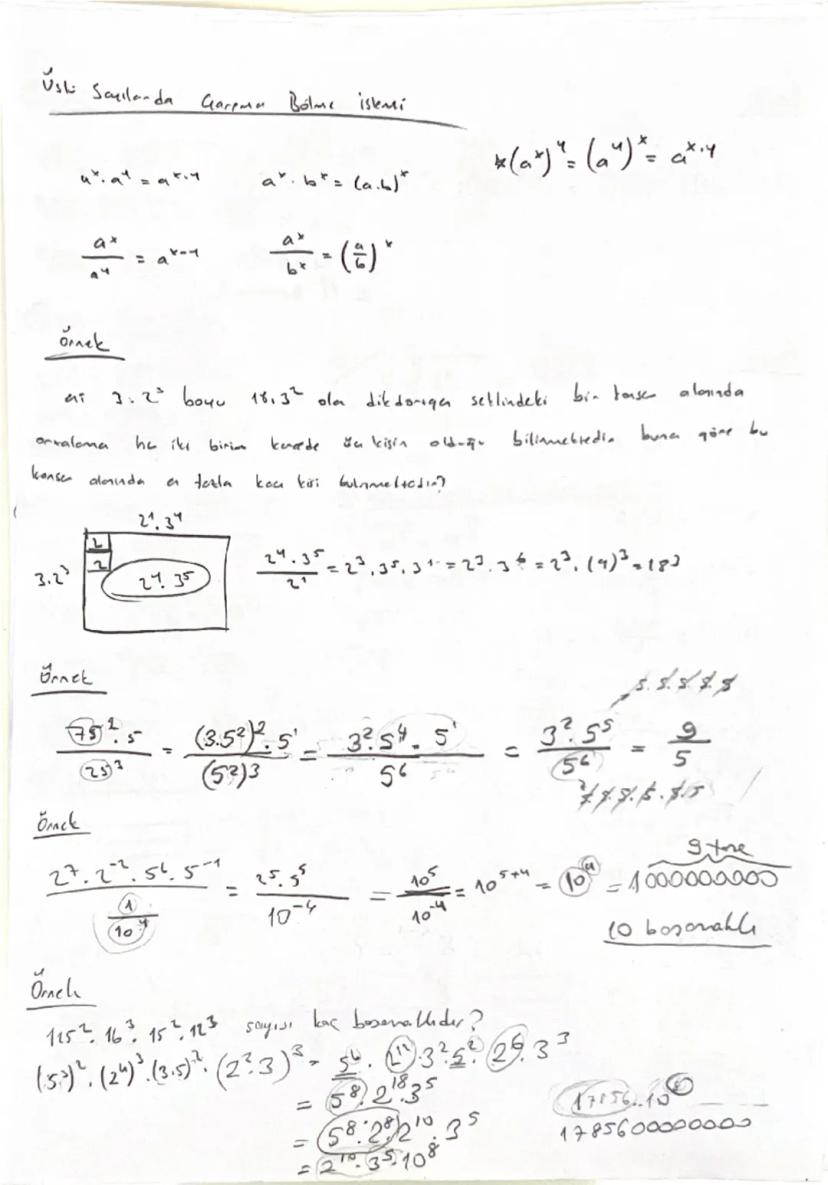 Üslü Sayılarda Çarpma Bölme işlemi
a^x . a^y = a^x.y    a^x . b^x = (a.b)^x    *(a^x)^y = (a^y)^x = a^x.y
a^x / a^y = a^x-y    a^x / b^x = (a/b)^x
Örnek
3.2^3 boyu 18.3^2 olan dikdörtgen şeklindeki bir konser alanında
ortalama her iki birim karede üç kişin olduğu bilinmektedir buna göre bu
konser alanında en fazla kaç kişi bulunmaktadır?
2^1.3^4
2
2
3.2^3    2^4.3^5    2^4.3^5 / 2^1 = 2^3.3^5.3^1 = 2^3.3^6 = 2^3.(9)^3 = 18^3
Örnek
5.5.5.5.5
75^2.5 / 25^3 = (3.5^2)^2.5^1 / (5^2)^3 = 3^2.5^4.5^1 / 5^6 = 3^2.5^5 / 5^6 = 9/5
Örnek
9 tane
2^7.2^-2.5^6.5^-1 / 1/10^4 = 2^5.5^5 / 10^-4 = 10^5 / 10^-4 = 10^5+4 = 10^9 = 1000000000
10 basamaklı
Örnek
125^2.16^3.15^2.12^3 sayısı kaç basamaklıdır?
(5^3)^2.(2^4)^3.(3.5)^2.(2^2.3)^3 = 5^6.2^12.3^2.5^2.2^6.3^3
= 5^8.2^18.3^5
= 5^8.2^8.2^10.3^5
= 2^10.3^5.10^8
17856..10